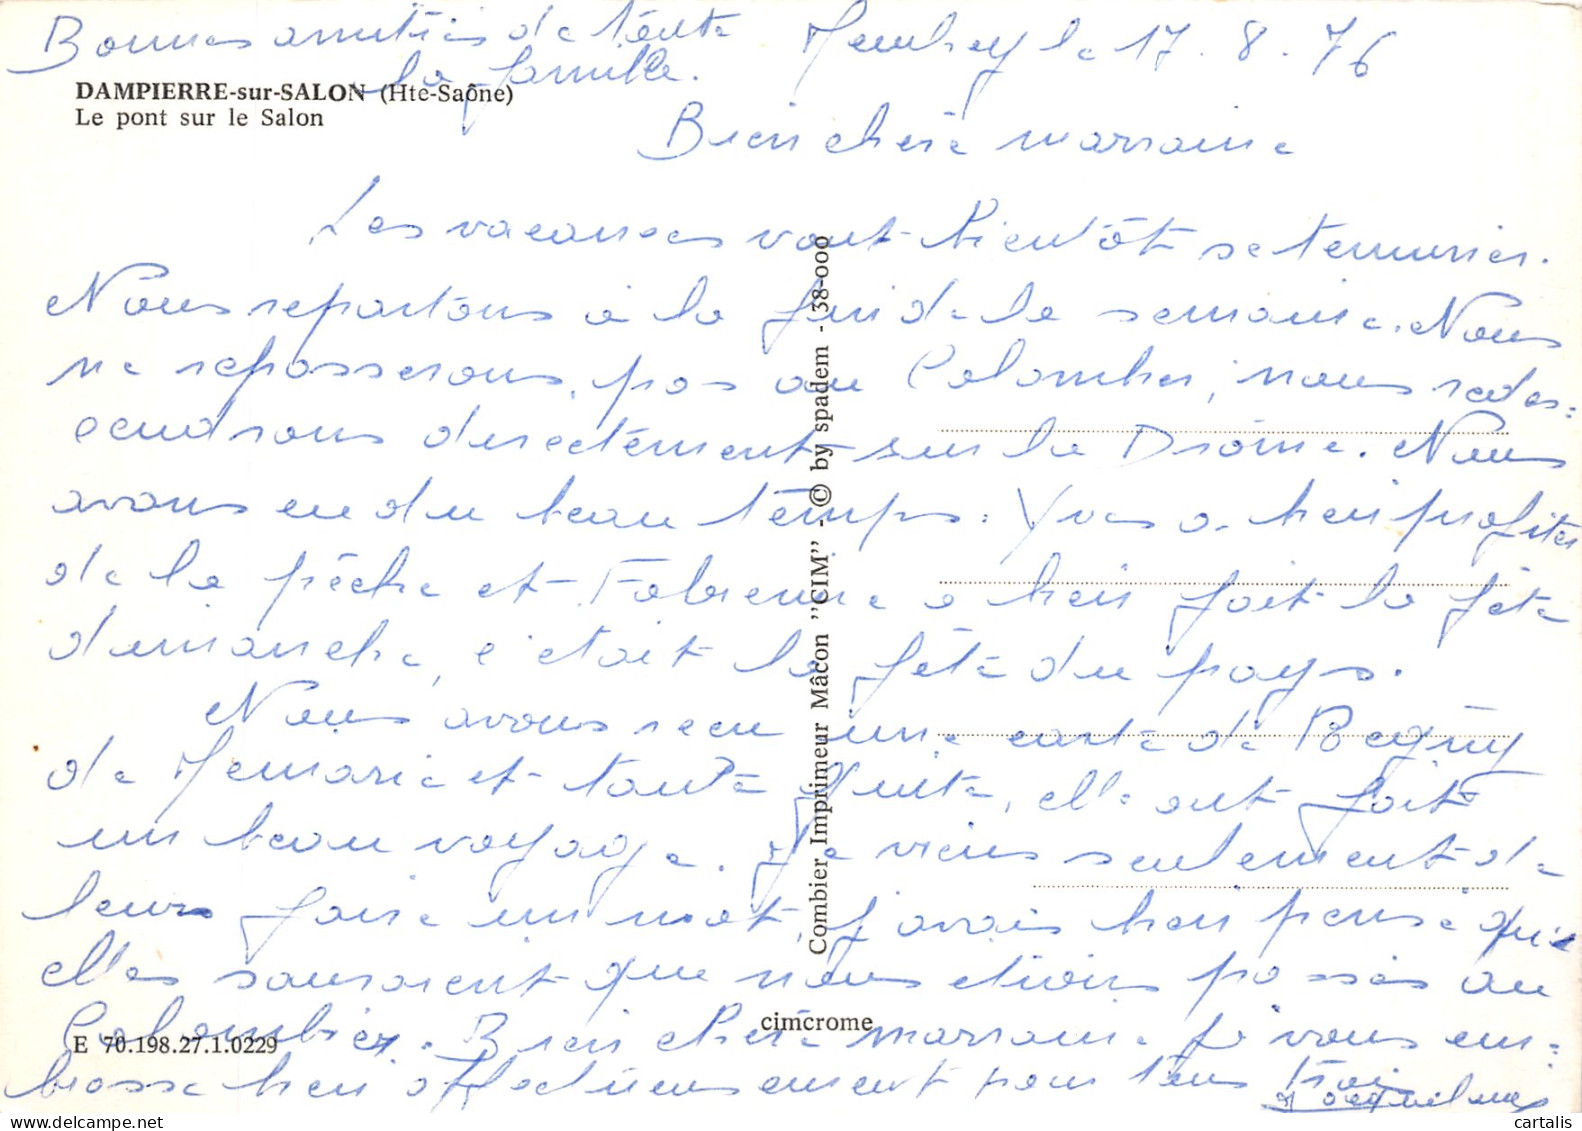 Bonnes amitiés de toute
la famille.
Membrey le 17.8.76
DAMPIERRE-sur-SALON (Hte-Saône)
Le pont sur le Salon
Bien chère marraine
Les vacances vont bientôt se terminer.
Nous repartons à la fin de la semaine. Nous
ne repasserons pas au Colombier, nous redes=
cendrons directement sur la Drôme. Nous
avons eu du beau temps. Yves a bien profiter
de la pêche et Fabienne a bien fait la fête
dimanche, c'était la fête du pays.
Nous avons reçu une carte de
de Memarie et tante, elle ont fait
un beau voyage. Je viens seulement de
leurs faire un mot, j'avais bien pensé que
elles sauraient que nous étions passés au
Colombier. Bien chère marraine je vous em=
brasse bien affectueusement pour tous trois
Jacqueline
Combier Imprimeur Mâcon "CIM" - © by spadem - 38-000
cimcrome
E 70.198.27.1.0229
cartalis